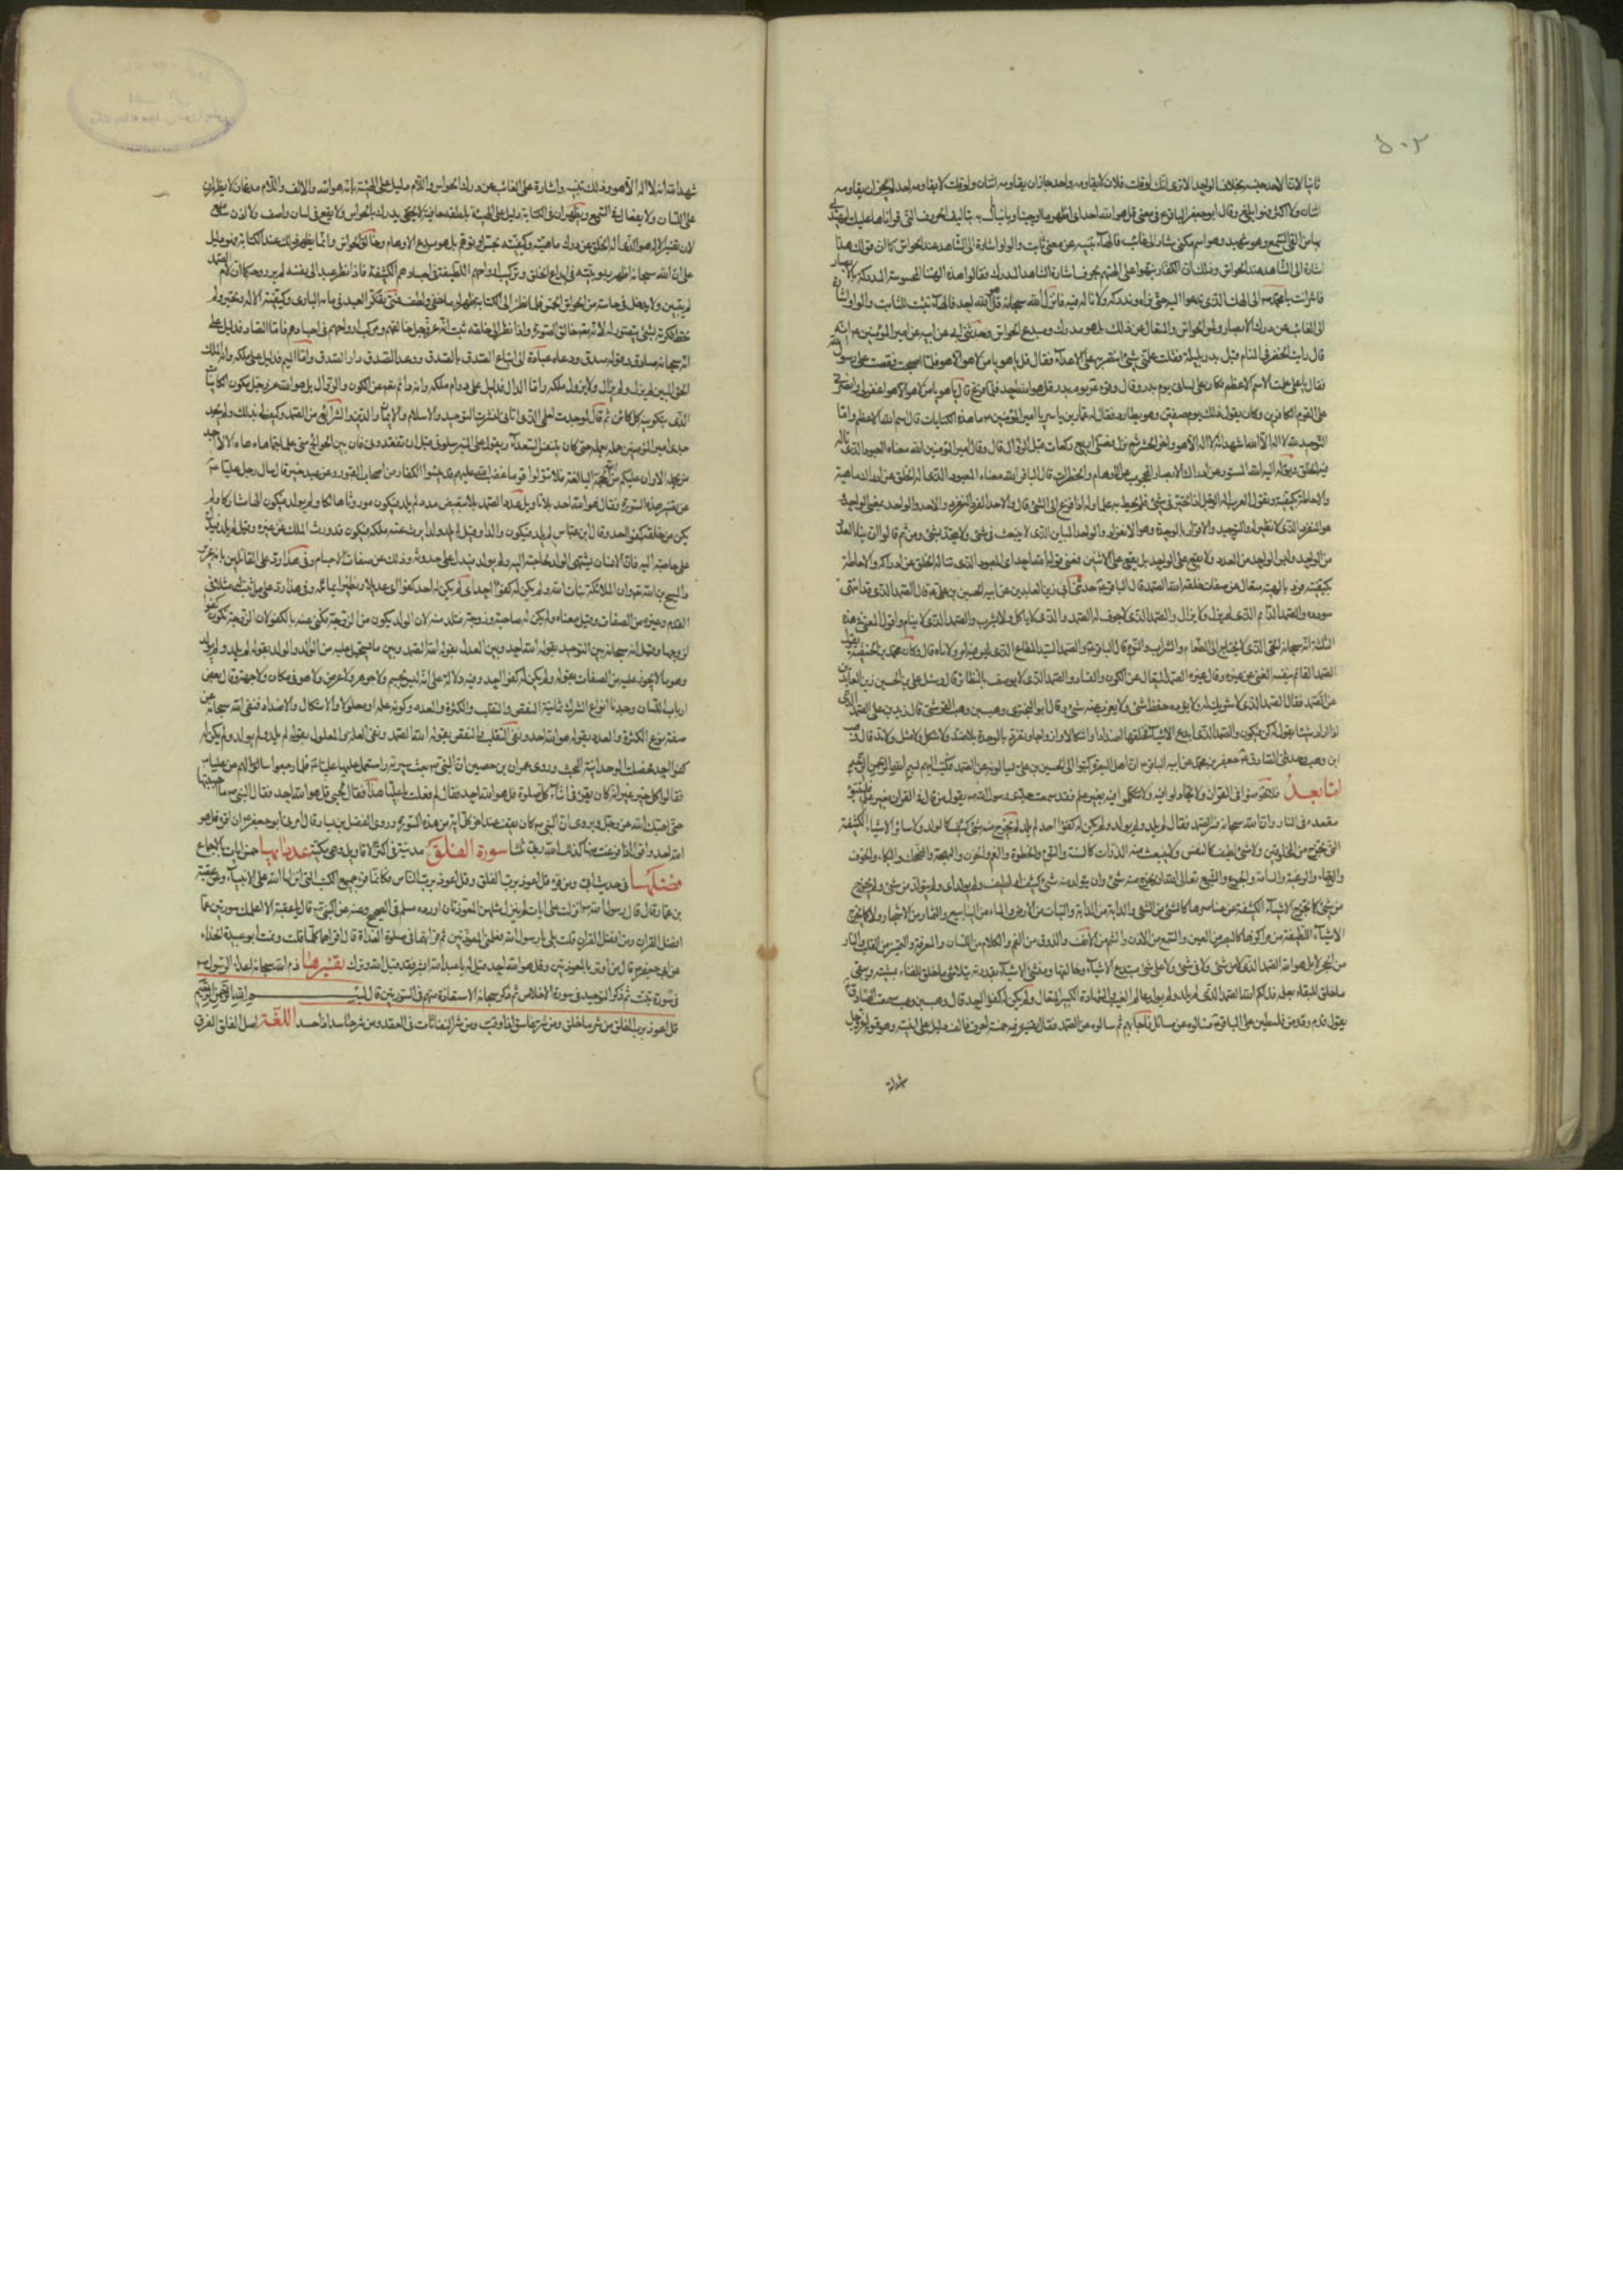 ٥٠٢
ثانيا لانك الاحد جنسه بخلاف الواحد الا ترى انك لو قلت فلان لا يقاومه واحد جاز ان يقاومه اثنان ولو قلت لا يقاومه احد لم يجز ان يقاومه
اثنان ولا اكثر فهو ابلغ وقال ابو جعفر الباقر ع في معنى قل هو الله احد اى اظهر ما اوحينا وبا نبأناك به بتاليف الحروف التى قراناها عليك ليهتدى
بها من القى السمع وهو شهيد وهو اسم مكنى مشار الى غائب فالهاء تنبيه عن معنى ثابت والواو اشارة الى الغائب عند الحواس كما ان قولك هذا
اشارة الى الشاهد عند الحواس وذلك ان الكفار نبهوا عن الهتهم بحرف اشارة الشاهد المدرك فقالوا هذه الهتنا المحسوسة المدركة بالابصار
فاشر انت يا محمد الى الهك الذى تدعوا اليه حتى نراه وندركه ولا ناله فيه فانزل الله سبحانه قل هو الله احد فالهاء تثبيت للثابت والواو اشارة
الى الغائب عن درك الابصار ولمس الحواس والله تعالى عن ذلك بل هو مدرك ومبدع الحواس وحدثنى ابى عن ابيه عن امير المؤمنين ع انه
قال رايت الخضر فى المنام قبل بدر بليلة فقلت علمنى شيئا انتصر به على الاعداء فقال قل يا هو يا من لا هو الا هو فلما اصبحت قصصت على رسول الله
فقال يا على علمت الاسم الاعظم فكان على لسانى يوم بدر وقال وقرء ع يوم بدر قل هو الله احد فلما فرغ قال يا هو يا من لا هو الا هو اغفر لى وانصرنى
على القوم الكافرين وكان يقول ذلك يوم صفين وهو يطارد فقال له عمار بن ياسر يا امير المؤمنين ما هذه الكنايات قال اسم الله الاعظم وعماد
التوحيد لله لا اله الا الله شهد الله لا اله الا هو واخر الحشر ثم نزل فصلى اربع ركعات قبل الزوال قال وقال امير المؤمنين الله معناه المعبود الذى ياله
فيه الخلق ويؤله اليه الله المستور عن ادراك الابصار المحجوب عن الاوهام والخطرات قال الباقر ع الله معناه المعبود الذى اله الخلق عن ادراك ماهيته
والاحاطة بكيفيته وتقول العرب اله الرجل اذا تحير فى الشئ فلم يحط به علما وله اذا فزع الى الشئ قال والاحد الفرد المتفرد والاحد والواحد بمعنى الواحد
هو المتفرد الذى لا نظير له والتوحيد والاقرار بالوحدة وهو الانفراد والواحد المباين الذى لا ينبعث من شئ ولا يتحد بشئ ومن ثم قالوا ان بناء العدد
من الواحد وليس الواحد من العدد ولا يقع على الواحد بل يقع على الاثنين فمعنى قوله الله احد اى المعبود الذى ياله الخلق عن ادراكه والاحاطة
بكيفيته فرد بالهيته متعال عن صفات خلقه الله الصمد قال الباقر ع حدثنى ابى زين العابدين عن ابيه الحسين بن على ع انه قال الصمد الذى قد انتهى
سودده والصمد الدائم الذى لم يزل ولا يزال والصمد الذى لا جوف له والصمد الذى لا ياكل ولا يشرب والصمد الذى لا ينام واقول المعنى فى هذه
الثلثة انه سبحانه الحى الذى لا يحتاج الى الطعام والشراب والنوم قال الباقر ع والصمد السيد المطاع الذى ليس فوقه امر ولا ناه قال وكان محمد بن الحنفية يقول
الصمد القائم بنفسه الغنى عن غيره وقال غيره الصمد المتعال عن الكون والفساد والصمد الذى لا يوصف بالنظائر قال وسئل على بن الحسين زين العابدين
عن الصمد فقال الصمد الذى لا شريك له ولا يؤده حفظ شئ ولا يعزب عنه شئ وقال ابو البخترى وهب بن وهب القرشى قال زيد بن على الصمد الذى
اذا اراد شيئا يقول له كن فيكون والصمد الذى ابدع الاشياء فخلقها اضدادا واشكالا وازواجا وتفرد بالوحدة بلا ضد ولا شكل ولا مثل ولا ند قال وهب
ابن وهب وحدثنى الصادق جعفر بن محمد عن ابيه الباقر ع ان اهل البصرة كتبوا الى الحسين بن على يسالونه عن الصمد فكتب اليهم بسم الله الرحمن الرحيم
اما بعد فلا تخوضوا فى القران ولا تجادلوا فيه ولا تتكلموا فيه بغير علم فقد سمعت جدى رسول الله يقول من قال فى القران بغير علم فليتبوء
مقعده فى النار وان الله سبحانه فسر الصمد فقال لم يلد ولم يولد ولم يكن له كفوا احد لم يلد لم يخرج منه شئ كثيف كالولد ولا سائر الاشياء الكثيفة
التى تخرج من المخلوقين ولا شئ لطيف كالنفس ولا ينبعث منه البدوات كالسنة والنوم والخطرة والغم والحزن والبهجة والضحك والبكاء والخوف
والرجاء والرغبة والسامة والجوع والشبع تعالى الله ان يخرج منه شئ وان يتولد منه شئ كثيف او لطيف ولم يولد اى ولم يتولد من شئ ولم يخرج
من شئ كما تخرج الاشياء الكثيفة من عناصرها كالشئ من الشئ والدابة من الدابة والنبات من الارض والماء من الينابيع والثمار من الاشجار ولا كما تخرج
الاشياء اللطيفة من مراكزها كالبصر من العين والسمع من الاذن والشم من الانف والذوق من الفم والكلام من اللسان والمعرفة والتميز من القلب والنار
من الحجر لا بل هو الله الصمد الذى لا من شئ ولا فى شئ ولا على شئ مبدع الاشياء وخالقها ومنشئ الاشياء بقدرته يتلاشى ما خلق للفناء بمشيته ويبقى
ما خلق للبقاء بعلمه فذلكم الله الصمد الذى لم يلد ولم يولد عالم الغيب والشهادة الكبير المتعال ولم يكن له كفوا احد قال وهب بن وهب سمعت الصادق ع
يقول قدم وفد من فلسطين على الباقر ع فسالوه عن مسائل فاجابهم ثم سالوه عن الصمد فقال تفسيره فيه خمسة احرف فالالف دليل على انيته وهو قوله عز وجل
شهد الله
شهد الله انه لا اله الا هو وذلك تنبيه واشارة على الغائب عن درك الحواس واللام دليل على الهيته بانه هو الله والالف واللام مدغمان لا يظهران
على اللسان ولا يقعان فى السمع ويظهران فى الكتابة دليل على الهيته بلطفه خافية لا يدرك بالحواس ولا يقع فى لسان واصف ولا اذن سامع
لان تفسير الاله هو الذى اله الخلق عن درك ماهيته وكيفيته بحس او بوهم بل هو مبدع الاوهام وخالق الحواس وانما يظهر ذلك عند الكتابة فهو دليل
على ان الله سبحانه اظهر ربوبيته فى ابداع الخلق وتركيب ارواحهم اللطيفة فى اجسادهم الكثيفة فاذا نظر عبد الى نفسه لم ير روحه كما ان لام الصمد
لم يتبين ولا يدخل فى حاسة من الحواس الخمس فلما نظر الى الكتابة ظهر له ما خفى ولطف فمتى تفكر العبد فى ماهية البارى وكيفيته اله وتحير ولم
تحط فكرته بشئ يتصور له لانه تع خالق الصور واذا نظر الى خلقه ثبت له انه عز وجل خالقهم ومركب ارواحهم فى اجسادهم واما الصاد فدليل على
انه سبحانه صادق وقوله صدق ودعا عباده الى اتباع الصدق بالصدق ووعد بالصدق دار الصدق واما الميم فدليل على ملكه وانه الملك
الحق المبين لم يزل ولا يزول ملكه واما الدال فدليل على دوام ملكه وانه دائم تع عن الكون والزوال بل هو الله عز وجل مكون الكائنات
الذى كان بتكوينه كل كائن ثم قال لو وجدت لعلمى الذى اتانى الله حملة لنشرت التوحيد والاسلام والايمان والدين والشرائع من الصمد وكيف لى بذلك ولم يجد
جدى امير المؤمنين حملة لعلمه حتى كان يتنفس الصعداء ويقول على المنبر سلونى قبل ان تفقدونى فان بين الجوانح منى علما جما هاه هاه الا لا اجد
من يحمله الا وانى عليكم من الله الحجة البالغة فلا تتولوا قوما غضب الله عليهم قد يئسوا من الاخرة كما يئس الكفار من اصحاب القبور وعن عبد خير قال سال رجل عليا ع
عن تفسير هذه السورة فقال قل هو الله احد بلا تاويل عدد الصمد بلا تبعيض بدد لم يلد فيكون موروثا هالكا ولم يولد فيكون الها مشاركا ولم
يكن من خلقه كفوا احد وقال ابن عباس لم يلد فيكون والدا ولم يولد فيكون ولدا وقيل لم يلد ولدا يرث عنه ملكه ولم يولد فيكون قد ورث الملك عن غيره وقيل لم يلد فيدل
على حاجته اليه فان الانسان يشتهى الولد لحاجته اليه ولم يولد فيدل على حدوثه وذلك من صفات الاجسام وفى هذا رد على القائلين بان عزير
والمسيح بن الله تع وان الملائكة بنات الله ولم يكن له كفوا احد اى لم يكن له احد كفوا اى عديلا ونظيرا يماثله وفى هذا رد على من اثبت له مثلا فى
القدم وغيره من الصفات وقيل معناه ولم يكن له صاحبة وزوجة فتلد منه لان الولد يكون من الزوجة فكنى عنها بالكفو لان الزوجة تكون كفوا
لزوجها وقيل انه سبحانه بين التوحيد بقوله الله احد وبين العدل بقوله الله الصمد وبين ما يستحيل عليه من الوالد والولد بقوله لم يلد ولم يولد
وهو ما لا يجوز عليه من الصفات بقوله ولم يكن له كفوا احد وفيه دلالة على انه ليس بجسم ولا جوهر ولا عرض ولا هو فى مكان ولا جهة وقال بعض
ارباب اللسان وجدنا انواع الشرك ثمانية النقص والتقلب والكثرة والعدد وكونه علة او معلولا والاشكال والاضداد فنفى الله سبحانه عن
صفته نوع الكثرة والعدد بقوله هو الله احد ونفى التقلب والنقص بقوله الله الصمد ونفى العلة والمعلول بقوله لم يلد ولم يولد ولم يكن له
كفوا احد فحصلت الوحدانية البحت وروى عمران بن حصين ان النبى ص بعث سرية واستعمل عليها عليا ع فلما رجعوا سالهم عن على ع
فقالوا كل خير غير انه كان يقرء فى اثناء كل صلوة قل هو الله احد فقال لم فعلت يا على هذا فقال لحبى قل هو الله احد فقال النبى ص ما احببتها
حتى احبك الله عز وجل ويروى ان النبى ص كان يقف عند اخر كل اية من هذه السورة وروى الفضل بن يسار قال امرنى ابو جعفر ع ان اقرء قل هو
الله احد واقول اذا فرغت منها كذلك الله ربى ثلثا سورة الفلق مدنية فى اكثر الاقاويل وقيل مكية عدد ايها خمس ايات بالاجماع
فضلها فى حديث ابى ومن قرء قل اعوذ برب الفلق وقل اعوذ برب الناس فكانما قرء جميع الكتب التى انزلها الله على الانبياء وعن عقبة
بن عامر قال قال رسول الله ص انزلت على ايات لم ينزل مثلهن المعوذتان اورده مسلم فى الصحيح وعنه عن النبى ص قال يا عقبة الا اعلمك سورتين هما
افضل القران ومن افضل القران قلت بلى يا رسول الله فعلمنى المعوذتين ثم قرء بهما فى صلوة الغداة قال اقراهما كلما قمت ونمت ابو عبيدة الحذاء
عن ابى جعفر ع قال من اوتر بالمعوذتين وقل هو الله احد قيل له يا عبد الله ابشر فقد قبل الله وترك تفسيرها ذم الله سبحانه اعداء الرسول ص
فى سورة تبت ثم ذكر التوحيد فى سورة الاخلاص ثم ذكر سبحانه الاستعاذة منهم فى السورتين قال بسم الله الرحمن الرحيم
قل اعوذ برب الفلق من شر ما خلق ومن شر غاسق اذا وقب ومن شر النفاثات فى العقد ومن شر حاسد اذا حسد اللغة اصل الفلق الفرق